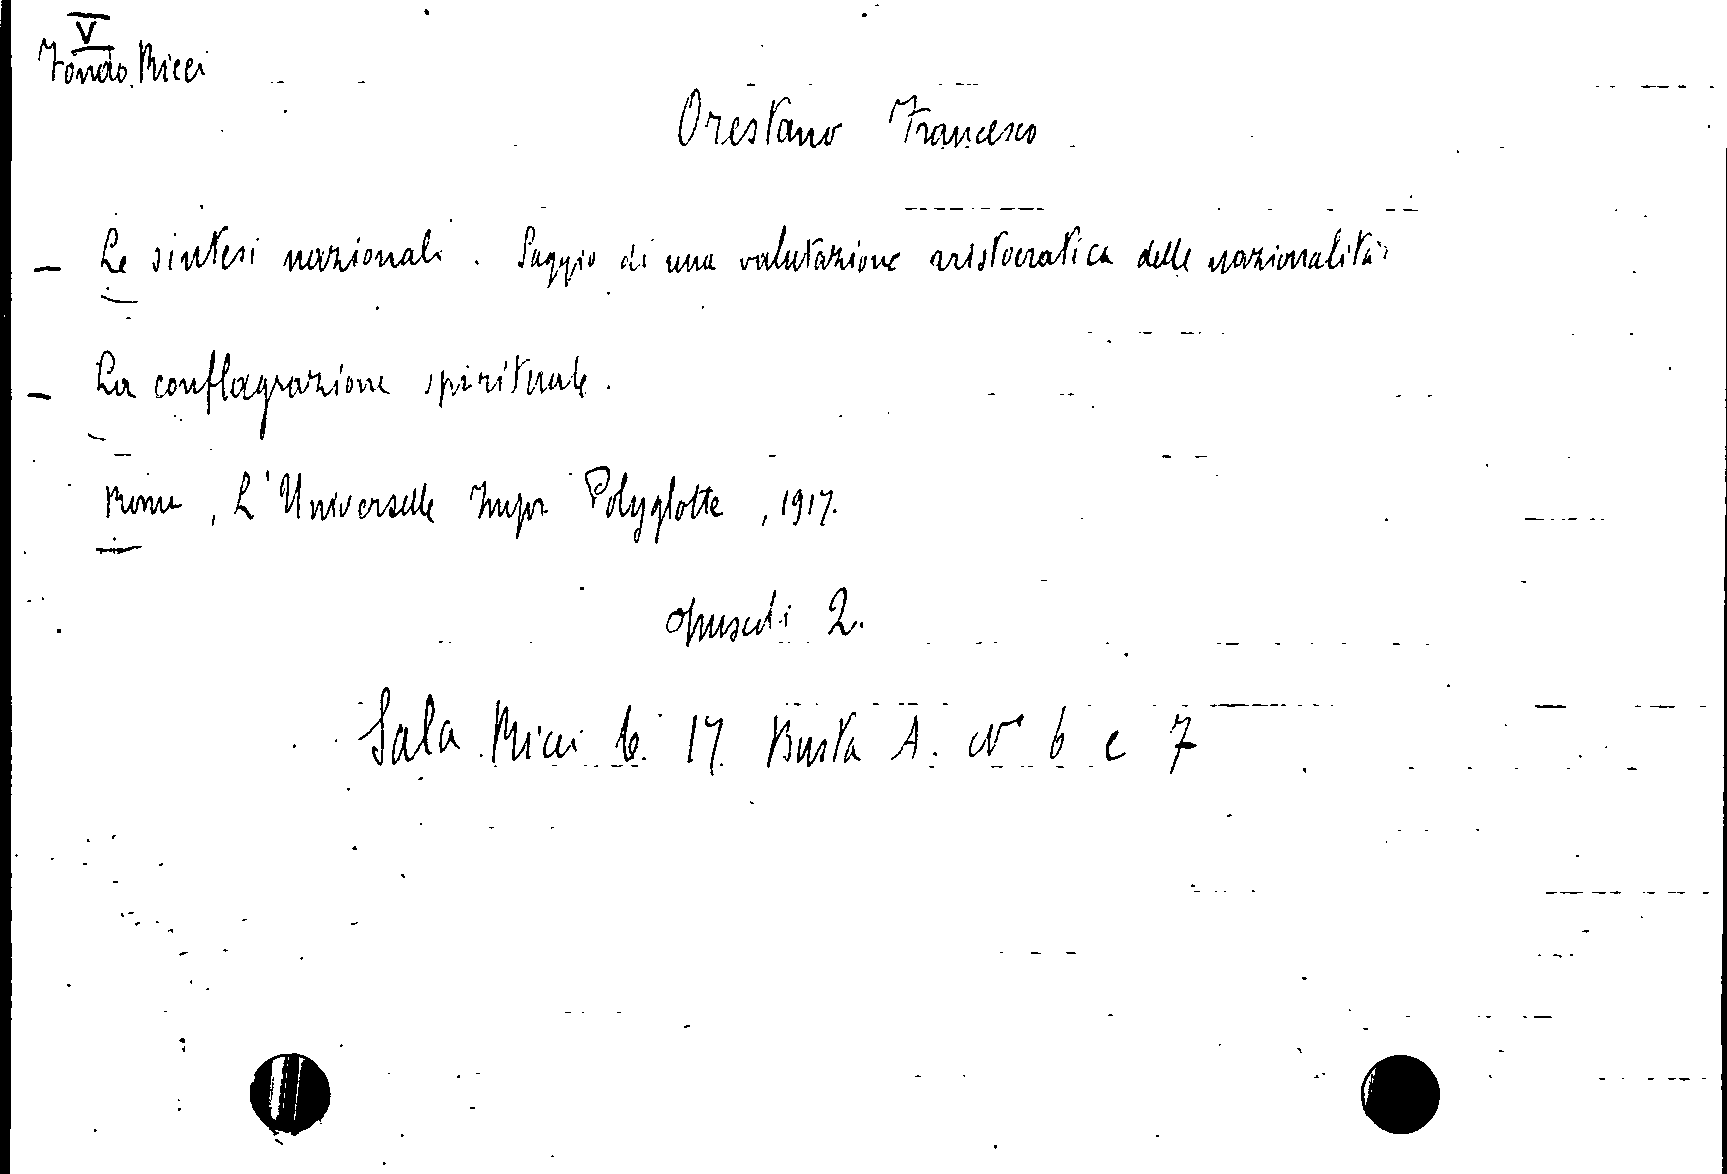 V
Fondo Ricci
Orestano Francesco
– Le sintesi nazionali. Saggio di una valutazione aristocratica delle nazionalità
– La conflagrazione spirituale.
Rome, L'Universelle Impr Polyglotte, 1917.
opuscoli 2.
Sala Ricci 6. 17. Busta A. N° 6 e 7